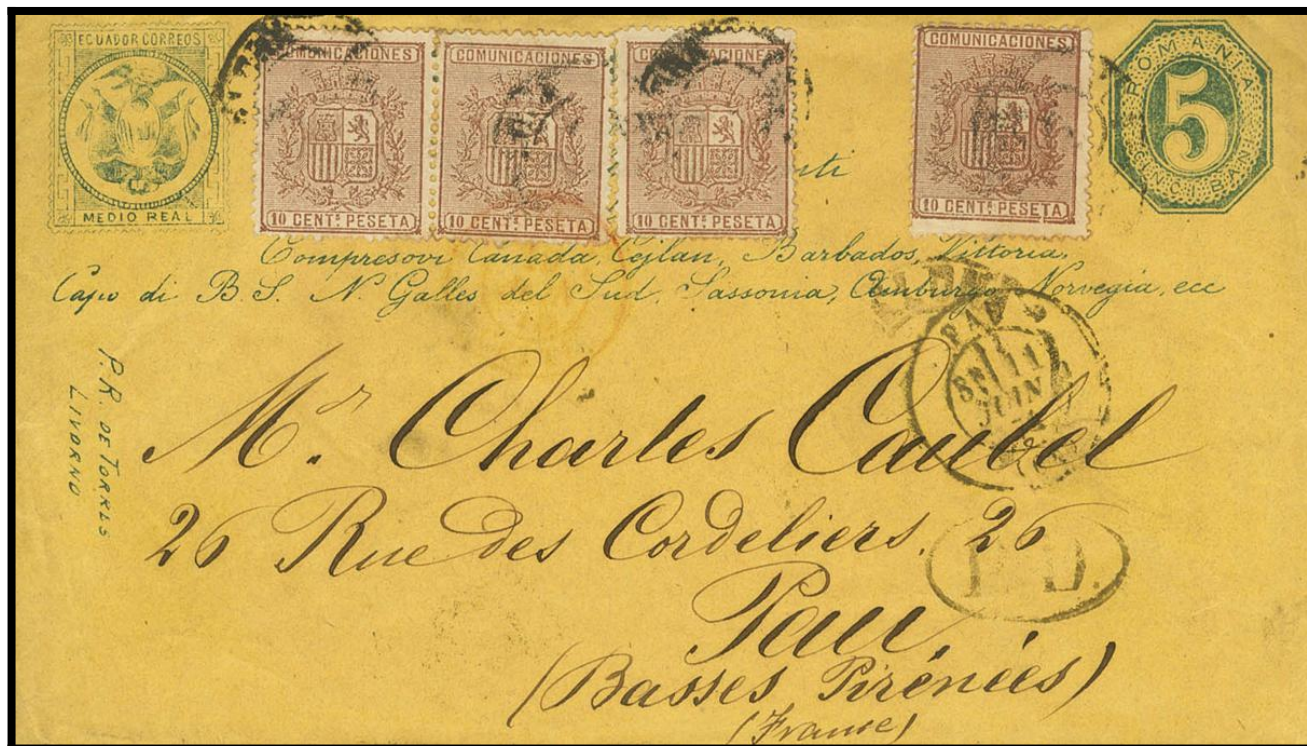 ECUADOR CORREOS
MEDIO REAL
COMUNICACIONES
10 CENTS PESETA
COMUNICACIONES
10 CENTS PESETA
COMUNICACIONES
10 CENTS PESETA
COMUNICACIONES
10 CENTS PESETA
ROMANIA
5
CINCI BANI
Compresovi Canada, Cejlan, Barbados, Vittoria,
Capo di B. S. N. Galles del Sud, Sassonia, Amburgo, Norvegia, ecc
P. R. DE TORRES
LIVORNO
PAU
11
JUIN
Mr. Charles Caubel
26 Rue des Cordeliers. 26
P.D.
Pau.
(Basses Pirénées)
(France)